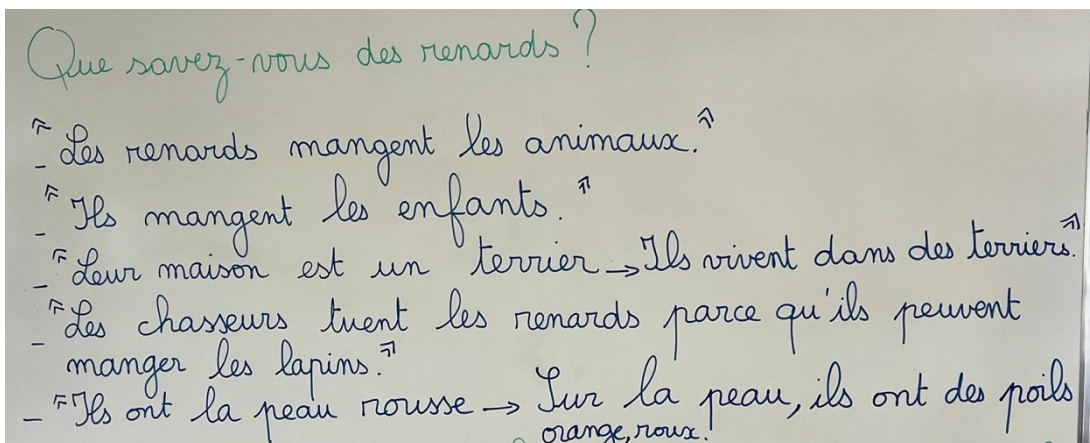 Que savez-vous des renards ?
- "Les renards mangent les animaux."
- "Ils mangent les enfants."
- "Leur maison est un terrier → Ils vivent dans des terriers."
- "Les chasseurs tuent les renards parce qu'ils peuvent
manger les lapins."
- "Ils ont la peau rousse → Sur la peau, ils ont des poils
orange, roux.